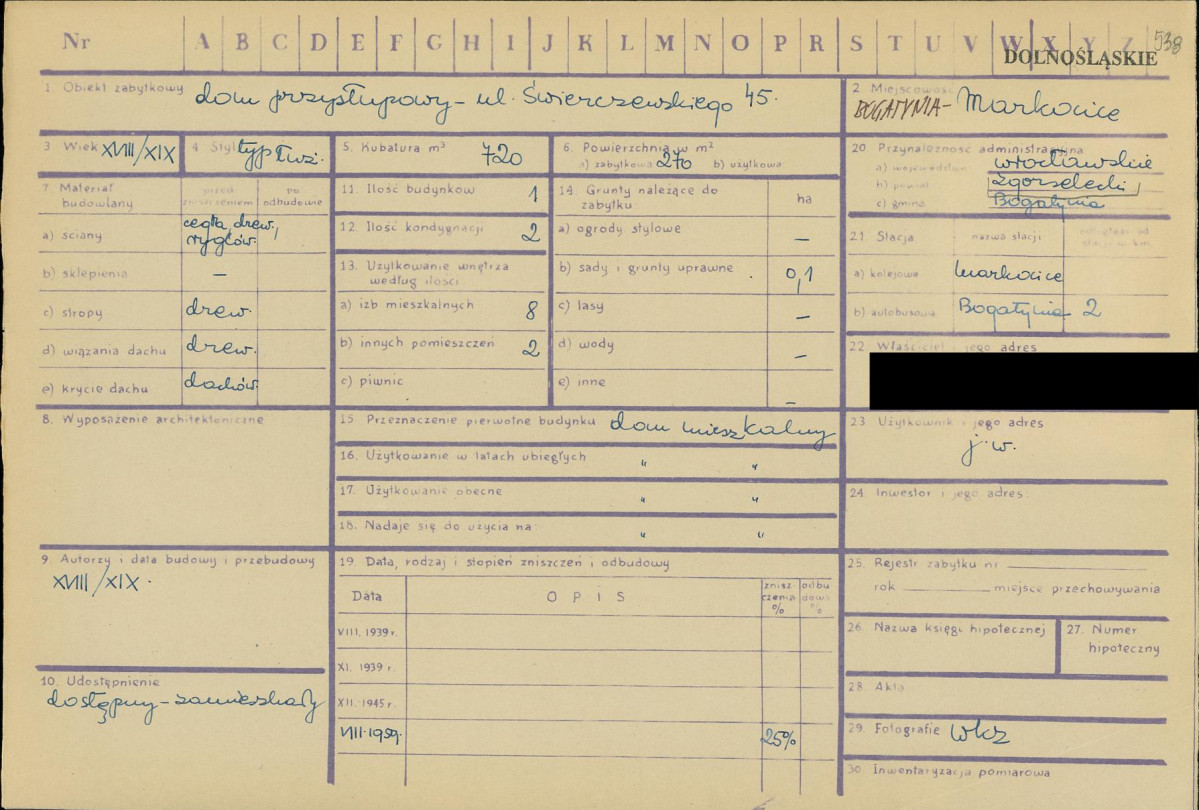 Nr A B C D E F G H I J K L M N O P R S T U V W X Y Z 538
DOLNOŚLĄSKIE
1. Obiekt zabytkowy dom przysłupowy - ul. Świerczewskiego 45.
2. Miejscowość
BOGATYNIA - Markocice
3 Wiek XVIII/XIX
4 Styl typ łuż.
5. Kubatura m³ 720
6. Powierzchnia w m²
a) zabytkowa 270 b) użytkowa
7 Materiał budowlany
przed zniszczeniem
po odbudowie
a) ściany cegła, drew., ryglów.
b) sklepienia —
c) stropy drew.
d) wiązania dachu drew.
e) krycie dachu dachów.
11. Ilość budynków 1
12. Ilość kondygnacji 2
13. Użytkowanie wnętrza
według ilości
a) izb mieszkalnych 8
b) innych pomieszczeń 2
c) piwnic
14. Grunty należące do
zabytku: ha
a) ogrody stylowe —
b) sady i grunty uprawne 0,1
c) lasy —
d) wody —
e) inne —
20. Przynależność administracyjna
a) województwo wrocławskie
b) powiat Zgorzelecki
c) gmina Bogatynia
21 Stacja nazwa stacji odległość od stacji w km
a) kolejowa Markocice
b) autobusowa Bogatynia 2
22. Właściciel i jego adres
8. Wyposażenie architektoniczne
15. Przeznaczenie pierwotne budynku dom mieszkalny
16. Użytkowanie w latach ubiegłych " "
17. Użytkowanie obecne " "
18. Nadaje się do użycia na " "
23 Użytkownik i jego adres
j.w.
24. Inwestor i jego adres
9. Autorzy i data budowy i przebudowy
XVIII/XIX.
19. Data, rodzaj i stopień zniszczeń i odbudowy
Data OPIS znisz-czenia % odbu dowa %
VIII. 1939 r.
XI. 1939 r.
XII. 1945 r.
VIII.1959. 25%
10. Udostępnienie
dostępny - zamieszkały
25. Rejestr zabytku nr
rok miejsce przechowywania
26. Nazwa księgi hipotecznej
27. Numer
hipoteczny
28. Akta
29. Fotografie wkz
30. Inwentaryzacja pomiarowa